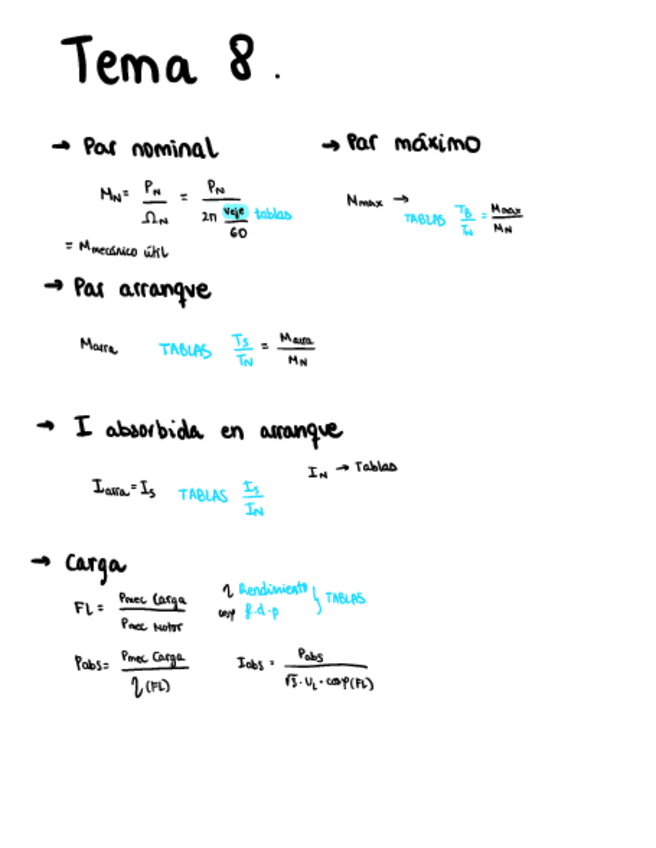 Tema 8.
→ Par nominal
M_N = P_N / Ω_N = P_N / (2π Veje/60) tablas
= M mecánico útil
→ Par máximo
Mmax →
TABLAS T_B/T_N = Mmax/M_N
→ Par arranque
Marra TABLAS T_S/T_N = Marra/M_N
→ I absorbida en arranque
I_N → Tablas
Iarra = I_S TABLAS I_S/I_N
→ Carga
FL = Pmec Carga / Pmec Motor
η Rendimiento
cosφ f.d.p } TABLAS
Pabs = Pmec Carga / η(FL)
Iabs = Pabs / √3 · U_L · cosφ(FL)